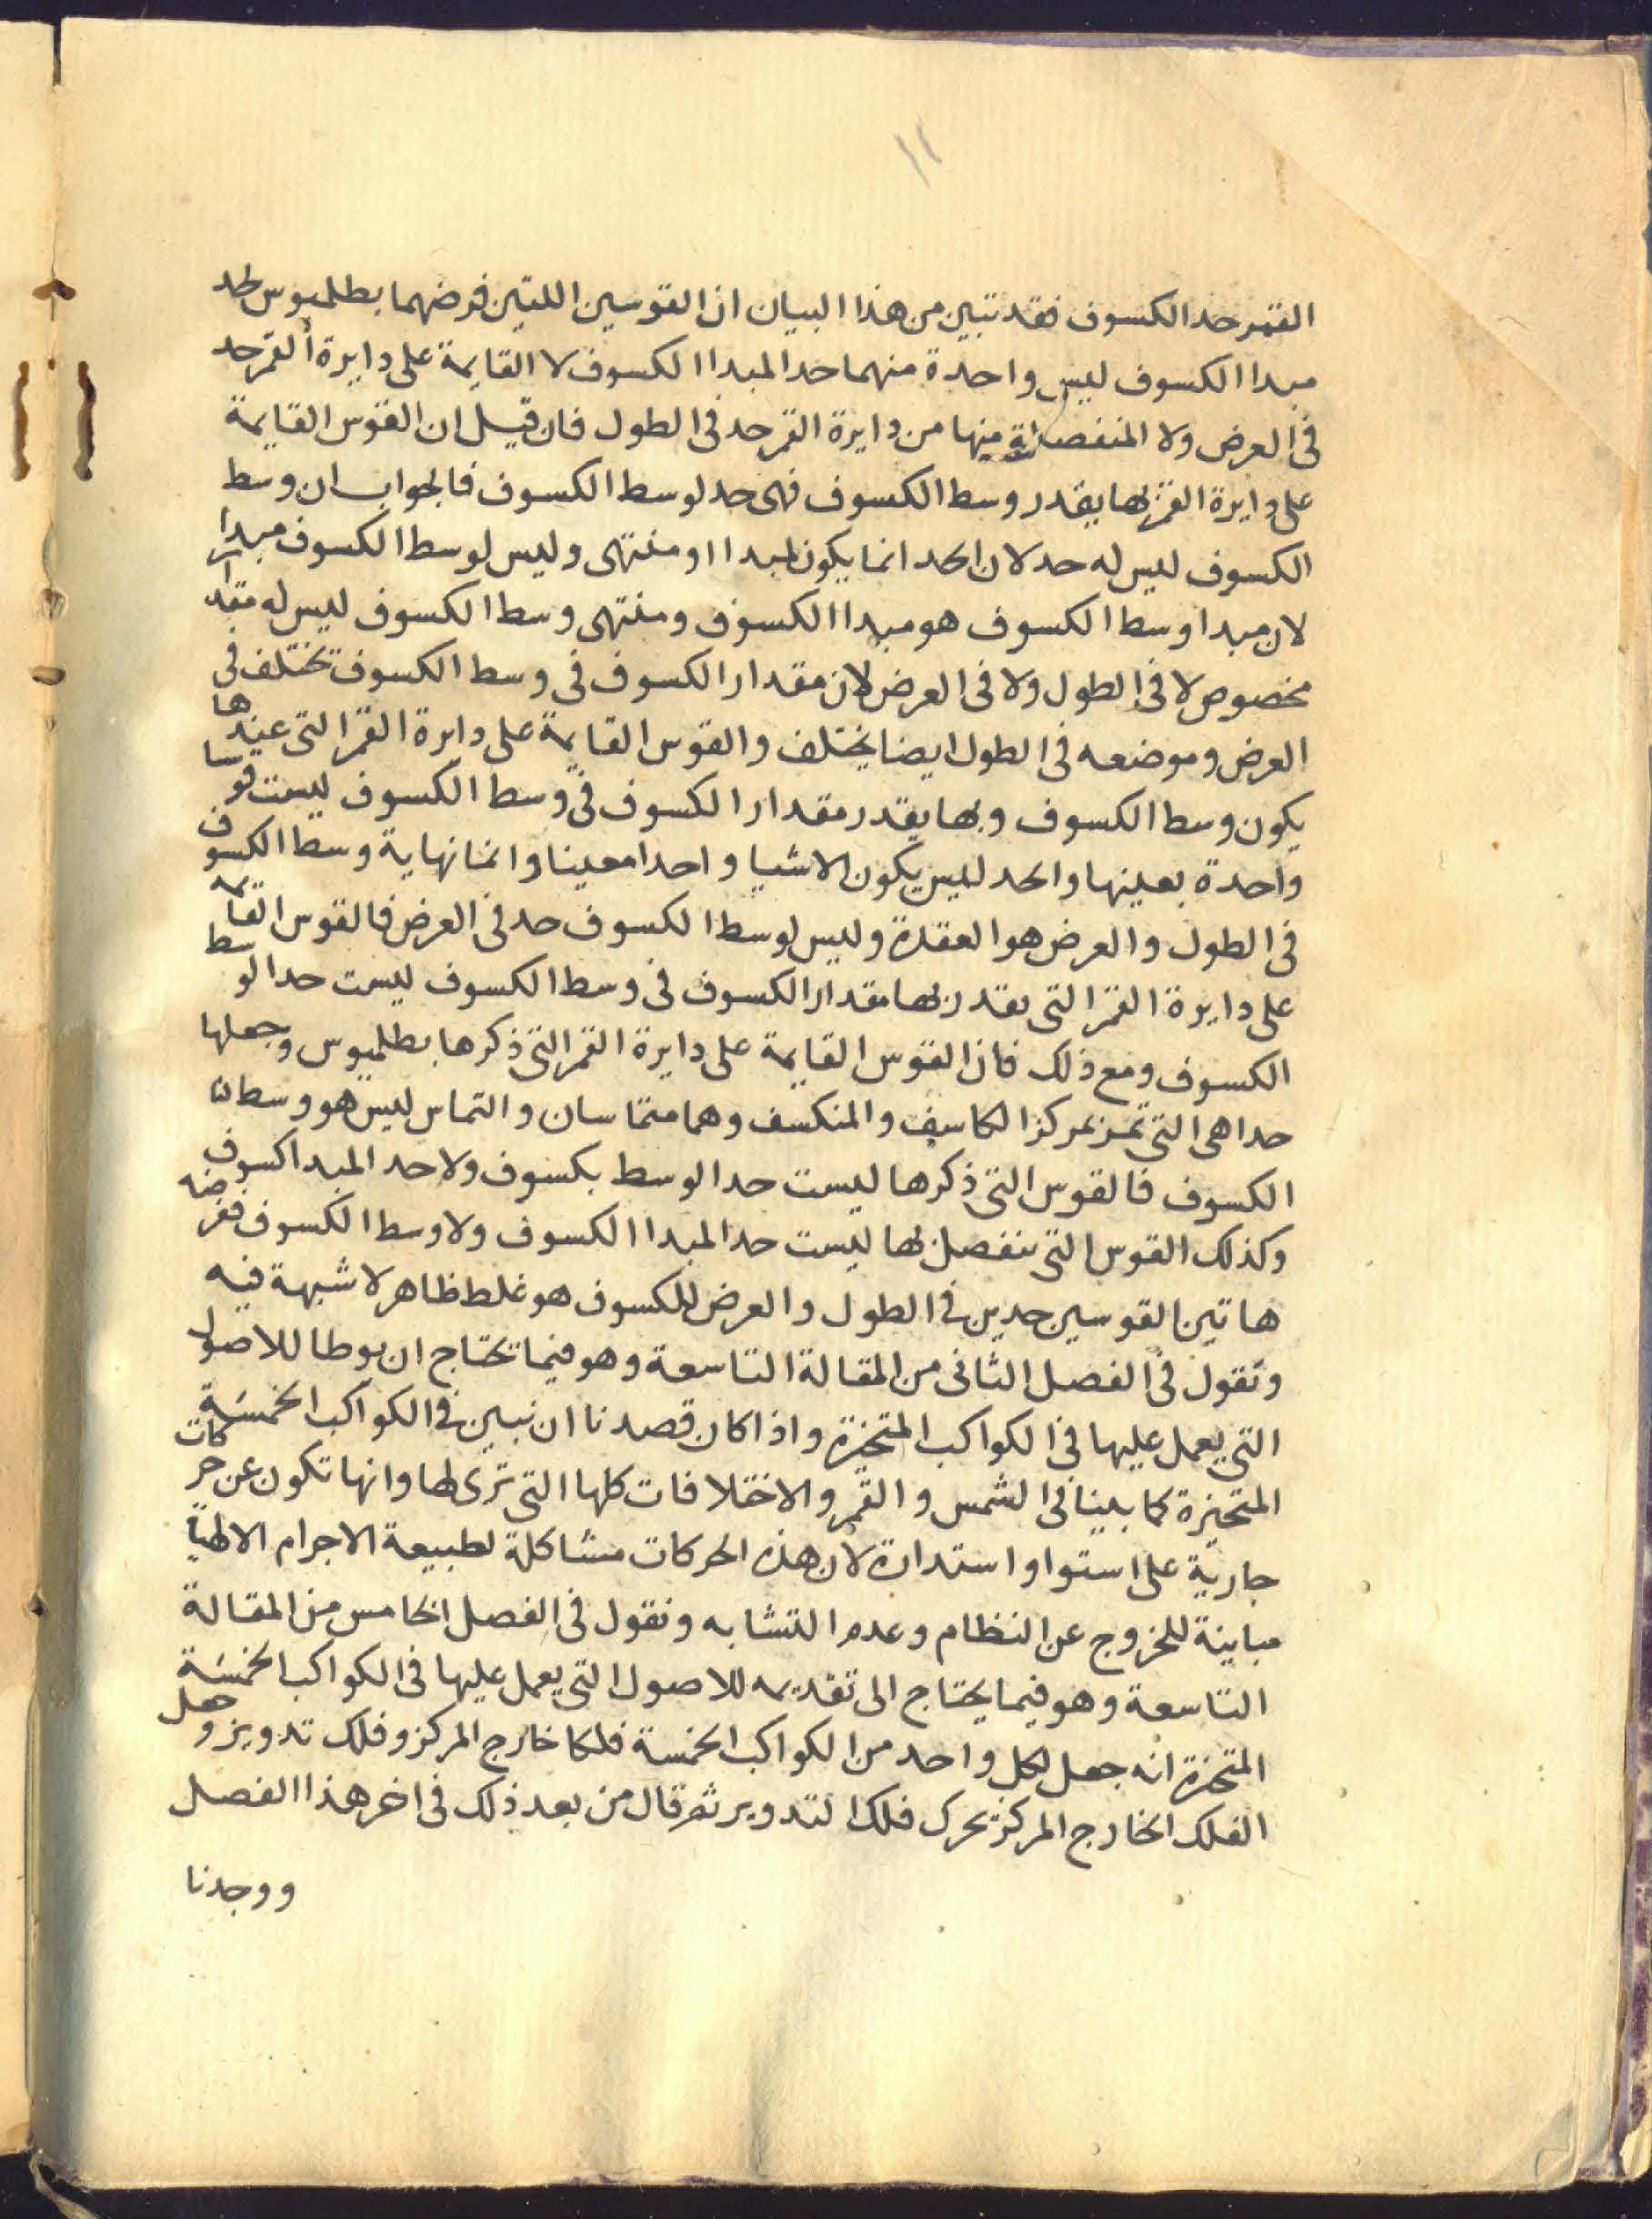 ١١
القمر حد الكسوف فقد تبين من هذا البيان ان القوسين اللتين فرضهما بطلميوس لحد
مبدا الكسوف ليس واحدة منهما حد المبدا الكسوف لا القايمة على دايرة القمر حد
فى العرض ولا المنفصلة منها من دايرة القمر حد فى الطول فان قيل ان القوس القايمة
على دايرة القمر بها يقدر وسط الكسوف فهى حد لوسط الكسوف فالجواب ان وسط
الكسوف ليس له حد لان الحد انما يكون لمبدا او منتهى وليس لوسط الكسوف مبدا
لان مبدا وسط الكسوف هو مبدا الكسوف ومنتهى وسط الكسوف ليس له مقدار
مخصوص لا فى الطول ولا فى العرض لان مقدار الكسوف فى وسط الكسوف تختلف فى
العرض وموضعه فى الطول ايضا يختلف والقوس القايمة على دايرة القمر التى عندها
يكون وسط الكسوف وبها يقدر مقدار الكسوف فى وسط الكسوف ليست قوسا
واحدة بعينها والحد ليس يكون الاشيا واحدا معينا وانما نهاية وسط الكسوف
فى الطول والعرض هو العقدة وليس لوسط الكسوف حد فى العرض فالقوس القايمه
على دايرة القمر التى يقدر بها مقدار الكسوف فى وسط الكسوف ليست حدا لوسط
الكسوف ومع ذلك فان القوس القايمة على دايرة القمر التى ذكرها بطلميوس وجعلها
حدا هى التى تمر بمركز الكاسف والمنكسف وهما متماسان والتماس ليس هو وسط
الكسوف فالقوس التى ذكرها ليست حدا لوسط بكسوف ولا حد المبدا كسوف
وكذلك القوس التى ينفصل بها ليست حد المبدا الكسوف ولا وسط الكسوف ففرضه
هاتين القوسين حدين فى الطول والعرض للكسوف هو غلط ظاهر لا شبهة فيه
ونقول فى الفصل الثانى من المقالة التاسعة وهو فيما تحتاج ان يوطا للاصول
التى يعمل عليها فى الكواكب المتحيزة واذا كان قصدنا ان نبين فى الكواكب الخمسة
المتحيزة كما بينا فى الشمس والقمر والاختلافات كلها التى ترى لها وانها تكون عن حركات
جارية على استوا واستدارة لان هذه الحركات مشاكلة لطبيعة الاجرام الالهية
مباينة للخروج عن النظام وعدم التشابه ونقول فى الفصل الخامس من المقالة
التاسعة وهو فيما يحتاج الى تقديمه للاصول التى يعمل عليها فى الكواكب الخمسة
المتحيزة انه جعل لكل واحد من الكواكب الخمسة فلكا خارج المركز وفلك تدوير وجعل
الفلك الخارج المركز يحرك فلك التدوير ثم قال من بعد ذلك فى اخر هذا الفصل
ووجدنا